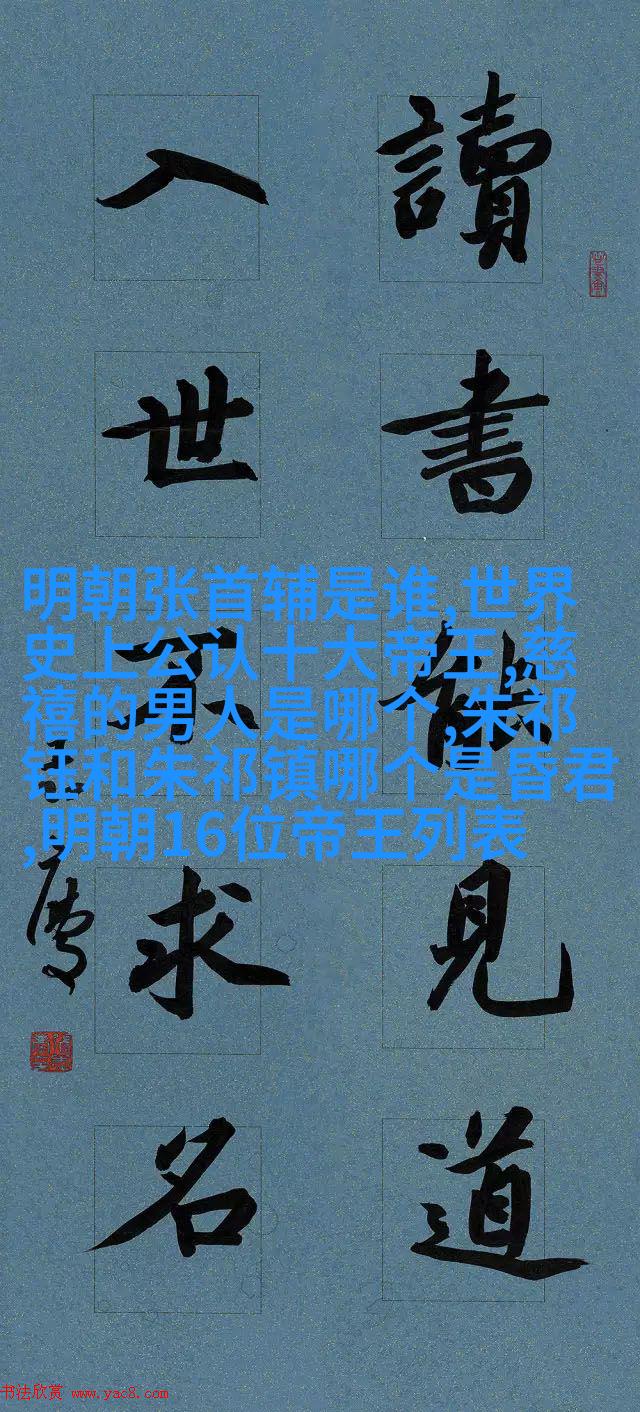 讀書
見道
入世
求名
明朝张首辅是谁,世界
史上公认十大帝王,慈
禧的男人是哪个,朱祁
钰和朱祁镇哪个是昏君
,明朝16位帝王列表
书法欣赏 www.yac8.com